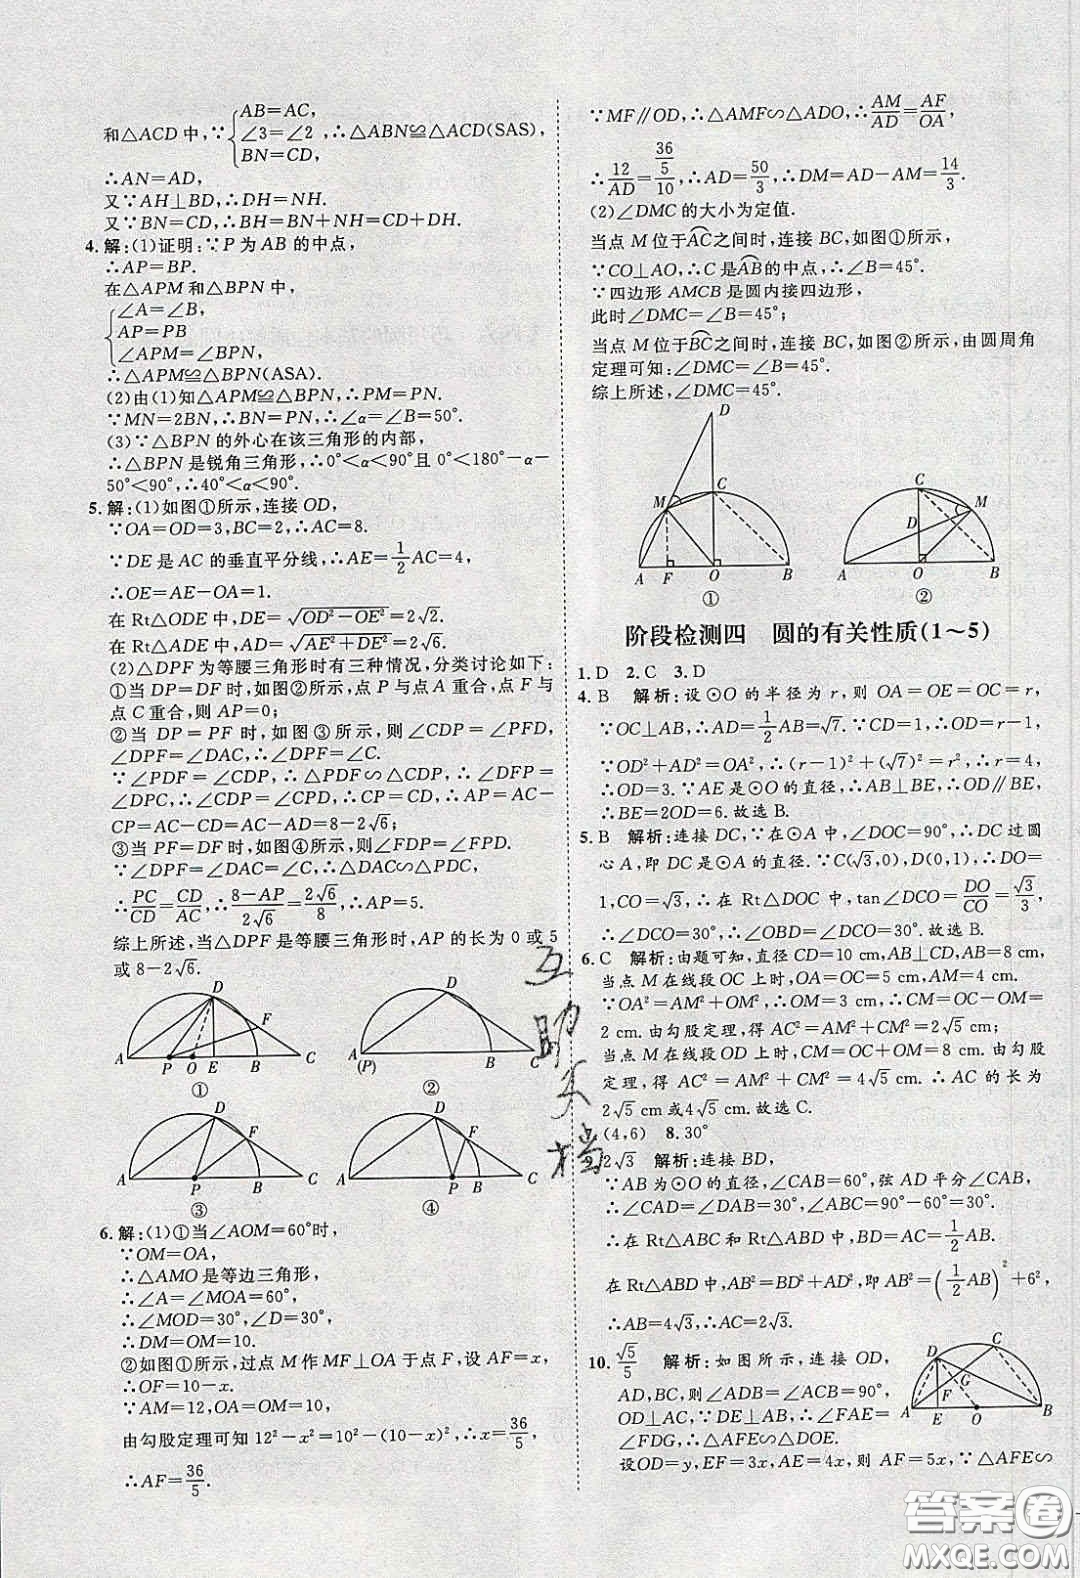 和△ACD中,∵{AB=AC, ∠3=∠2, BN=CD, ∴△ABN≌△ACD(SAS),
∴AN=AD,
又∵AH⊥BD,∴DH=NH.
又∵BN=CD,∴BH=BN+NH=CD+DH.
4.解:(1)证明:∵P为AB的中点,
∴AP=BP.
在△APM和△BPN中,
{∠A=∠B,
AP=PB
∠APM=∠BPN,
∴△APM≌△BPN(ASA).
(2)由(1)知△APM≌△BPN,∴PM=PN.
∵MN=2BN,∴BN=PN,∴∠α=∠B=50°.
(3)∵△BPN的外心在该三角形的内部,
∴△BPN是锐角三角形,∴0°<α<90°且0°<180°-α-
50°<90°,∴40°<α<90°.
5.解:(1)如图①所示,连接OD,
∵OA=OD=3,BC=2,∴AC=8.
∵DE是AC的垂直平分线,∴AE=1/2AC=4,
∴OE=AE-OA=1.
在Rt△ODE中,DE=√(OD²-OE²)=2√2.
在Rt△ADE中,AD=√(AE²+DE²)=2√6.
(2)△DPF为等腰三角形时有三种情况,分类讨论如下:
①当DP=DF时,如图②所示,点P与点A重合,点F与
点C重合,则AP=0;
②当DP=PF时,如图③所示,则∠CDP=∠PFD,
∠DPF=∠DAC,∴∠DPF=∠C.
∵∠PDF=∠CDP,∴△PDF∽△CDP,∴∠DFP=
∠DPC,∴∠CDP=∠CPD,∴CP=CD,∴AP=AC-
CP=AC-CD=AC-AD=8-2√6;
③当PF=DF时,如图④所示,则∠FDP=∠FPD.
∵∠DPF=∠DAC=∠C,∴△DAC∽△PDC,
∴PC/CD=CD/AC,∴(8-AP)/2√6=2√6/8,∴AP=5.
综上所述,当△DPF是等腰三角形时,AP的长为0或5
或8-2√6.
D F A P O E B C
①
D A (P) B C
②
D F A P B C
③
D F A P B C
④
6.解:(1)①当∠AOM=60°时,
∵OM=OA,
∴△AMO是等边三角形,
∴∠A=∠MOA=60°,
∴∠MOD=30°,∠D=30°,
∴DM=OM=10.
②如图①所示,过点M作MF⊥OA于点F,设AF=x,
∴OF=10-x.
∵AM=12,OA=OM=10,
由勾股定理可知12²-x²=10²-(10-x)²,∴x=36/5,
∴AF=36/5.
∵MF∥OD,∴△AMF∽△ADO,∴AM/AD=AF/OA,
∴12/AD=(36/5)/10,∴AD=50/3,∴DM=AD-AM=14/3.
(2)∠DMC的大小为定值.
当点M位于AC之间时,连接BC,如图①所示,
∵CO⊥AO,∴C是AB的中点,∴∠B=45°.
∵四边形AMCB是圆内接四边形,
此时∠DMC=∠B=45°;
当点M位于BC之间时,连接BC,如图②所示,由圆周角
定理可知:∠DMC=∠B=45°.
综上所述,∠DMC=45°.
D M C A F O B
①
C M D A O B
②
阶段检测四 圆的有关性质(1~5)
1.D 2.C 3.D
4.B 解析:设⊙O的半径为r,则OA=OE=OC=r,
∵OC⊥AB,∴AD=1/2AB=√7.∵CD=1,∴OD=r-1,
∵OD²+AD²=OA²,∴(r-1)²+(√7)²=r²,∴r=4,
∴OD=3.∵AE是⊙O的直径,∴AB⊥BE,∴OD∥BE,
∴BE=2OD=6.故选B.
5.B 解析:连接DC,∵在⊙A中,∠DOC=90°,∴DC过圆
心A,即DC是⊙A的直径.∵C(√3,0),D(0,1),∴DO=
1,CO=√3,∴在Rt△DOC中,tan∠DCO=DO/CO=√3/3,
∴∠DCO=30°,∴∠OBD=∠DCO=30°.故选B.
6.C 解析:由题可知,直径CD=10 cm,AM⊥CD,AB=8 cm,
当点M在线段OC上时,OA=OC=5 cm,AM=4 cm.
∵OA²=AM²+OM²,∴OM=3 cm,∴CM=OC-OM=
2 cm.由勾股定理,得AC²=AM²+CM²=2√5 cm;
当点M在线段OD上时,CM=OC+OM=8 cm.由勾股
定理,得AC²=AM²+CM²=4√5 cm.∴AC的长为
2√5 cm或4√5 cm.故选C.
(4,6) 8.30°
9.2√3 解析:连接BD,
∵AB为⊙O的直径,∠CAB=60°,弦AD平分∠CAB,
∴∠CAD=∠DAB=30°,∴∠ABC=90°-60°=30°.
∴在Rt△ABC和Rt△ABD中,∴BD=AC=1/2AB.
在Rt△ABD中,AB²=BD²+AD²,即AB²=(1/2AB)²+6²,
∴AB=4√3,∴AC=2√3.
10.√5/5 解析:如图所示,连接OD,
AD,BC,则∠ADB=∠ACB=90°,
OD⊥AC,∵DE⊥AB,∴∠FAE=
∠FDG,∴△AFE∽△DOE.
设OD=y,EF=3x,AE=4x,则AF=5x,∵△AFE∽
D C G F A E O B
互助文档
答案圈
MXQE.COM